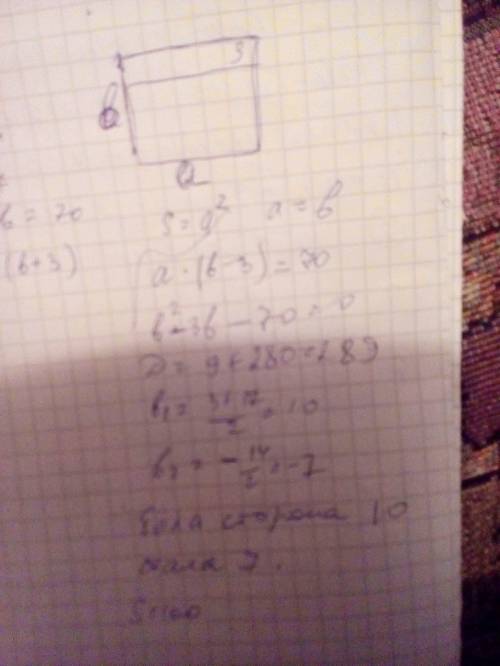 3
b
a
b = 70
S = a² a = b
(b+3)
a · (b - 3) = 70
b² - 3b - 70 = 0
D = 9 + 280 = 289
b₁ = (3+17)/2 = 10
b₂ = -14/2 = -7
была сторона 10
стала 7.
S=100